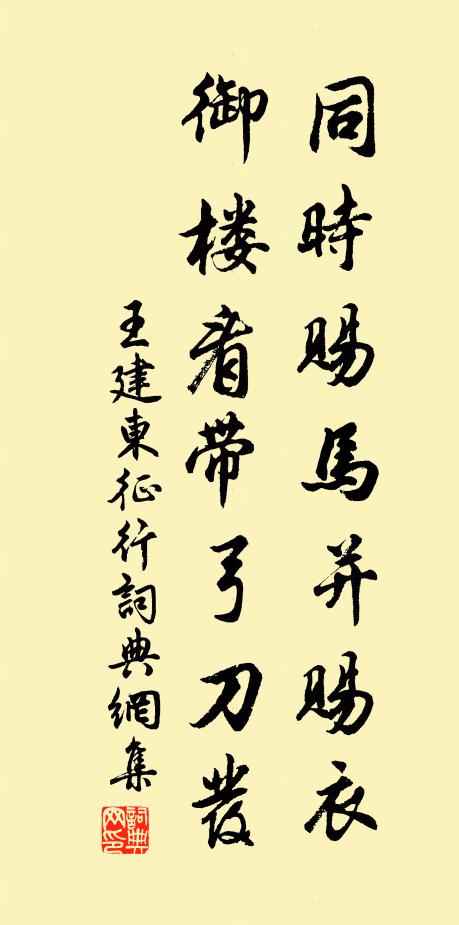 同時賜馬并賜衣
御楼看带弓刀發
王建東征行詞典網集
詞典網印